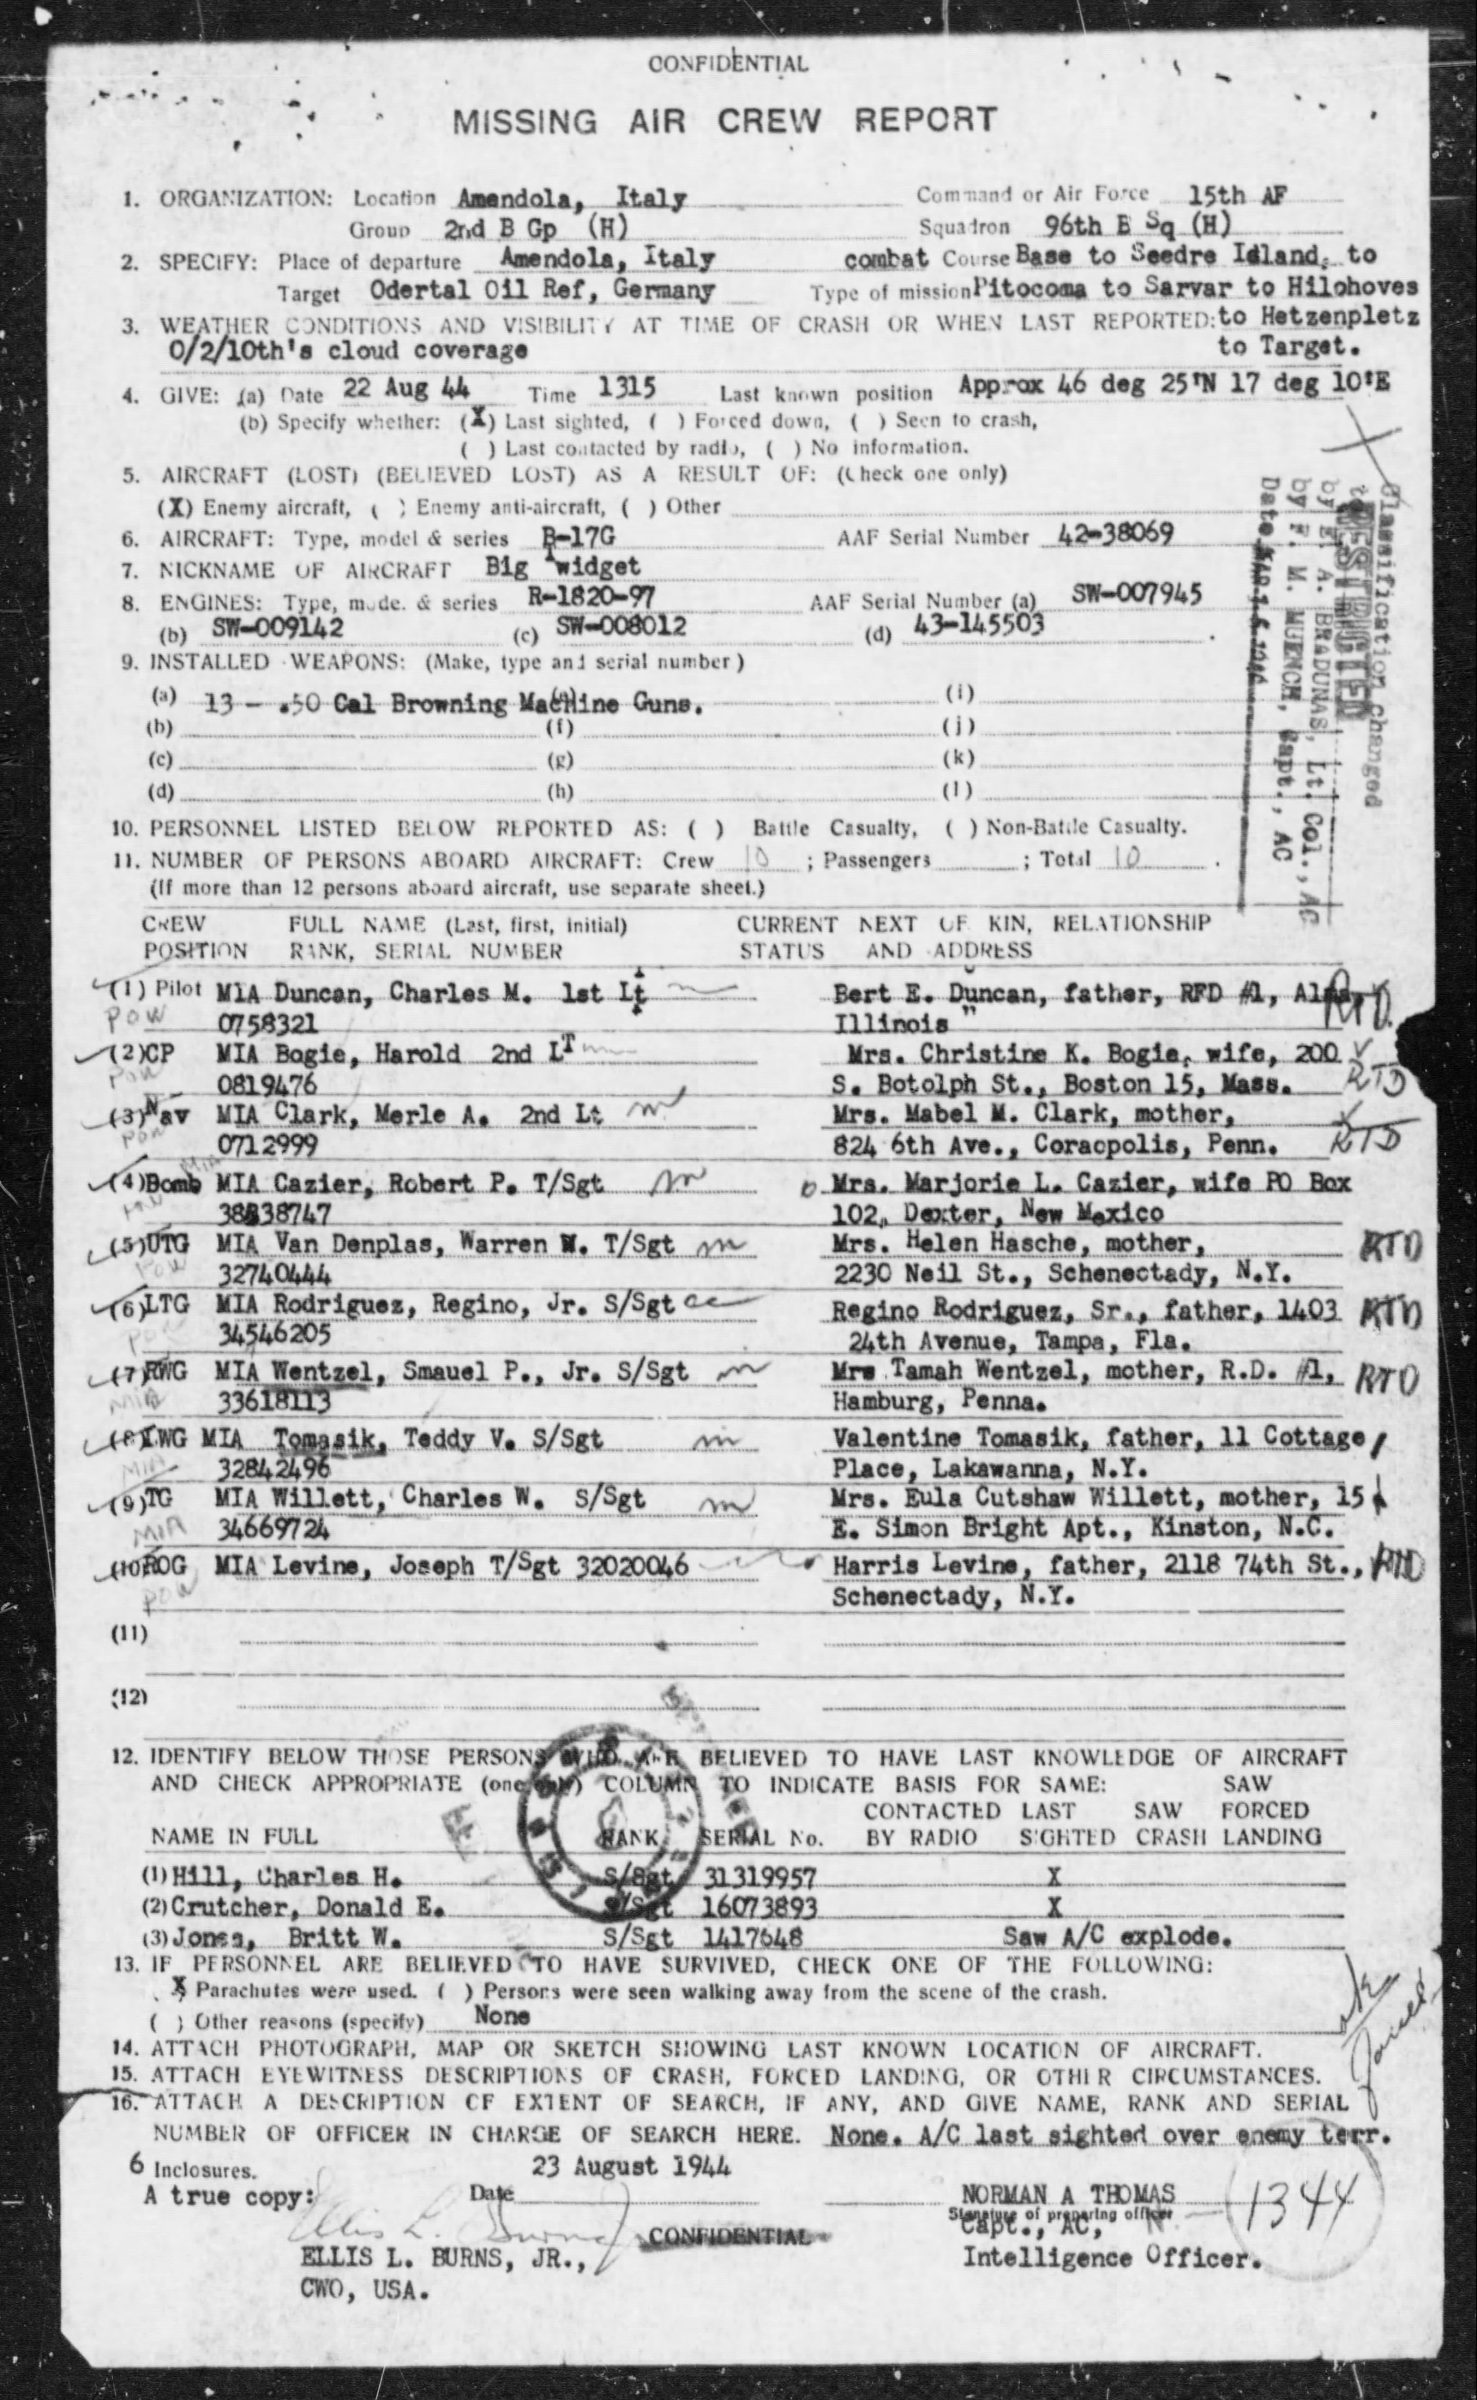 CONFIDENTIAL
MISSING AIR CREW REPORT
1. ORGANIZATION: Location Amendola, Italy Command or Air Force 15th AF
Group 2nd B Gp (H) Squadron 96th B Sq (H)
2. SPECIFY: Place of departure Amendola, Italy combat Course Base to Seedre Idland, to
Target Odertal Oil Ref, Germany Type of mission Pitocoma to Sarvar to Hilohoves
3. WEATHER CONDITIONS AND VISIBILITY AT TIME OF CRASH OR WHEN LAST REPORTED: to Hetzenpletz
0/2/10th's cloud coverage to Target.
4. GIVE: (a) Date 22 Aug 44 Time 1315 Last known position Approx 46 deg 25'N 17 deg 10'E
(b) Specify whether: (X) Last sighted, ( ) Forced down, ( ) Seen to crash,
( ) Last contacted by radio, ( ) No information.
5. AIRCRAFT (LOST) (BELIEVED LOST) AS A RESULT OF: (Check one only)
(X) Enemy aircraft, ( ) Enemy anti-aircraft, ( ) Other
6. AIRCRAFT: Type, model & series B-17G AAF Serial Number 42-38069
7. NICKNAME OF AIRCRAFT Big Twidget
8. ENGINES: Type, mode. & series R-1820-97 AAF Serial Number (a) SW-007945
(b) SW-009142 (c) SW-008012 (d) 43-145503
9. INSTALLED WEAPONS: (Make, type and serial number)
(a) 13 - .50 Cal Browning Machine Guns. (i)
(b) (f) (j)
(c) (g) (k)
(d) (h) (l)
Classification changed
to RESTRICTED
by E. A. BRADUNAS, Lt. Col., AC
by F. M. MUENCH, Capt., AC
Date MAR 1 6 1946
10. PERSONNEL LISTED BELOW REPORTED AS: ( ) Battle Casualty, ( ) Non-Battle Casualty.
11. NUMBER OF PERSONS ABOARD AIRCRAFT: Crew 10 ; Passengers ; Total 10 .
(If more than 12 persons aboard aircraft, use separate sheet.)
CREW FULL NAME (Last, first, initial) CURRENT NEXT OF KIN, RELATIONSHIP
POSITION RANK, SERIAL NUMBER STATUS AND ADDRESS
(1) Pilot MIA Duncan, Charles M. 1st Lt Bert E. Duncan, father, RFD #1, Alma, RTD
POW 0758321 Illinois
(2) CP MIA Bogie, Harold 2nd LT Mrs. Christine K. Bogie, wife, 200
POW 0819476 S. Botolph St., Boston 15, Mass. RTD
(3) Nav MIA Clark, Merle A. 2nd Lt m Mrs. Mabel M. Clark, mother,
POW 0712999 824 6th Ave., Coraopolis, Penn. RTD
MIA
(4) Bomb MIA Cazier, Robert P. T/Sgt m Mrs. Marjorie L. Cazier, wife PO Box
38338747 102, Dexter, New Mexico
(5) UTG MIA Van Denplas, Warren W. T/Sgt m Mrs. Helen Hasche, mother, RTD
POW 32740444 2230 Neil St., Schenectady, N.Y.
(6) LTG MIA Rodriguez, Regino, Jr. S/Sgt Regino Rodriguez, Sr., father, 1403 RTD
34546205 24th Avenue, Tampa, Fla.
(7) RWG MIA Wentzel, Smauel P., Jr. S/Sgt m Mrs Tamah Wentzel, mother, R.D. #1, RTD
MIA 33618113 Hamburg, Penna.
(8) LWG MIA Tomasik, Teddy V. S/Sgt m Valentine Tomasik, father, 11 Cottage
MIA 32842496 Place, Lakawanna, N.Y.
(9) TG MIA Willett, Charles W. S/Sgt m Mrs. Eula Cutshaw Willett, mother, 15
MIA 34669724 E. Simon Bright Apt., Kinston, N.C.
(10) ROG MIA Levine, Joseph T/Sgt 32020046 Harris Levine, father, 2118 74th St., RTD
POW Schenectady, N.Y.
(11)
(12)
12. IDENTIFY BELOW THOSE PERSONS WHO ARE BELIEVED TO HAVE LAST KNOWLEDGE OF AIRCRAFT
AND CHECK APPROPRIATE (one only) COLUMN TO INDICATE BASIS FOR SAME: SAW
CONTACTED LAST SAW FORCED
NAME IN FULL RANK SERIAL No. BY RADIO SIGHTED CRASH LANDING
(1) Hill, Charles H. S/Sgt 31319957 X
(2) Crutcher, Donald E. S/Sgt 16073893 X
(3) Jones, Britt W. S/Sgt 1417648 Saw A/C explode.
13. IF PERSONNEL ARE BELIEVED TO HAVE SURVIVED, CHECK ONE OF THE FOLLOWING:
X Parachutes were used. ( ) Persons were seen walking away from the scene of the crash.
( ) Other reasons (specify) None
14. ATTACH PHOTOGRAPH, MAP OR SKETCH SHOWING LAST KNOWN LOCATION OF AIRCRAFT.
15. ATTACH EYEWITNESS DESCRIPTIONS OF CRASH, FORCED LANDING, OR OTHER CIRCUMSTANCES.
16. ATTACH A DESCRIPTION OF EXTENT OF SEARCH, IF ANY, AND GIVE NAME, RANK AND SERIAL
NUMBER OF OFFICER IN CHARGE OF SEARCH HERE. None. A/C last sighted over enemy terr.
6 Inclosures. 23 August 1944
A true copy: Date NORMAN A THOMAS 1344
Signature of preparing officer
Capt., AC,
Ellis L. Burns Jr CONFIDENTIAL
ELLIS L. BURNS, JR., Intelligence Officer.
CWO, USA.